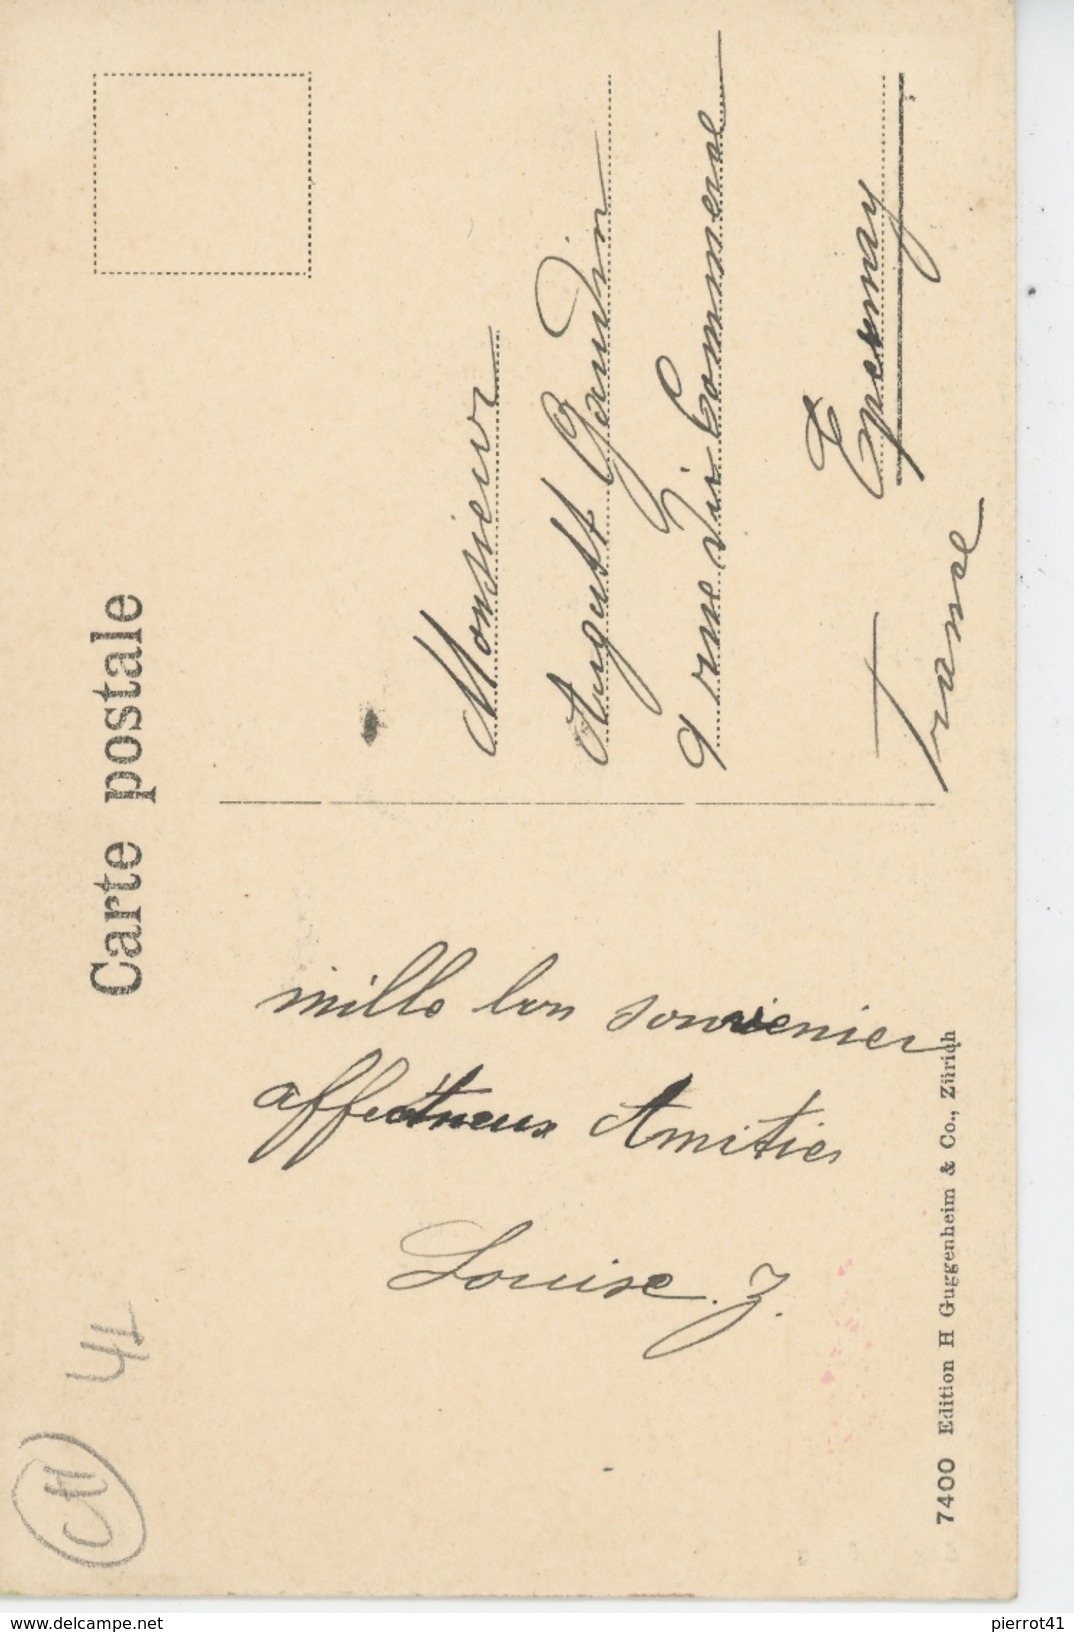 Carte postale
mille bon souvenier
affectueux Amities
Louise. Z.
Monsieur
August Gaudin
9 rue Commerce
Epernay
France
7400 Edition H Guggenheim & Co., Zürich
CH
41
www.delcampe.net
pierrot41